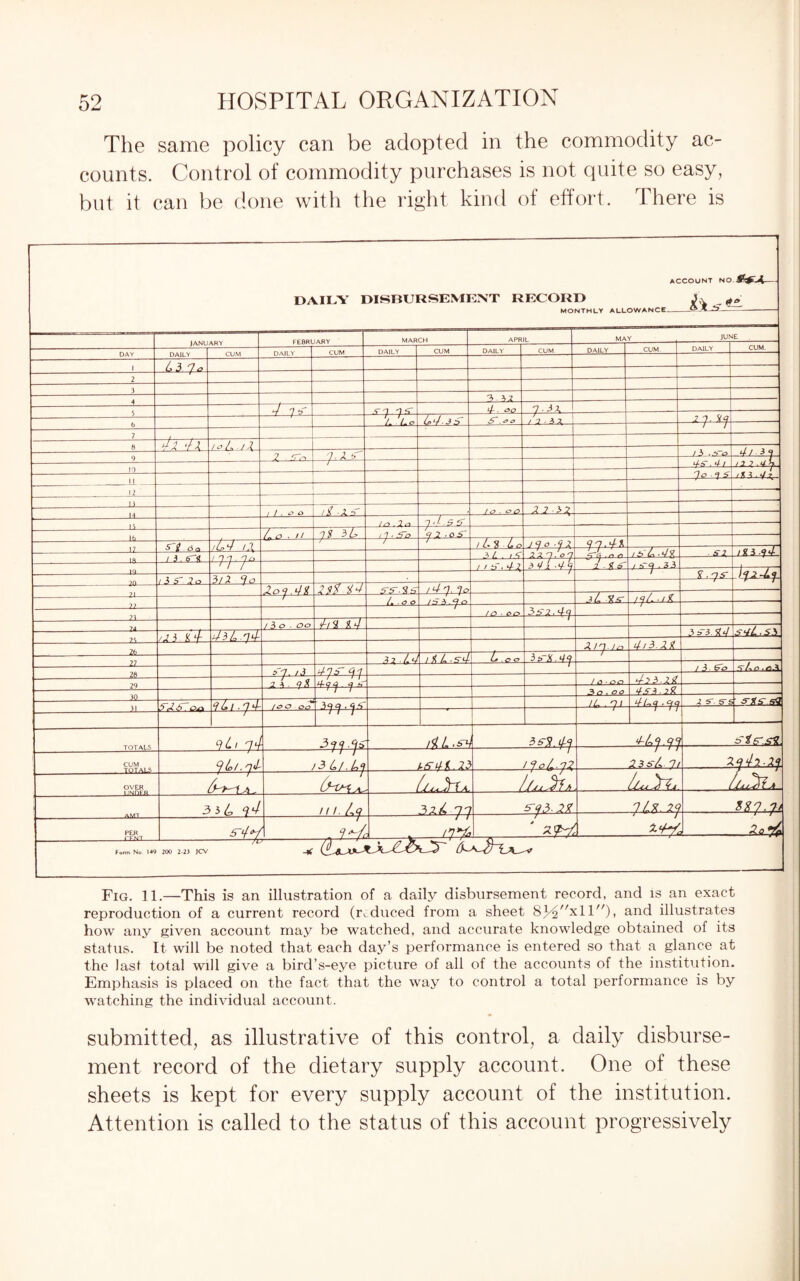 52 HOSPITAL ORGANIZATION
The same policy can be adopted in the commodity ac-
counts. Control of commodity purchases is not quite so easy,
but it can be done with the right kind of effort. There is
ACCOUNT NO.
DAILY DISBURSEMENT RECORD
MONTHLY ALLOWANCE
JANUARY FEBRUARY MARCH APRIL MAY JUNE
DAY DAILY CUM DAILY CUM DAILY CUM DAILY CUM DAILY CUM DAILY CUM.
1 63.70
2
3
4 3 32
5 4 75 57 75 4.00 7.32
6 6.60 64.35 5.00 12.32 27.89
7
8 42 42 106.12
9 2.50 7.25 13.50 41.39
10 45.41
11 70 75
12
13
14 11.00 18.25 10.00 22.32
15 10.20 74.55
16 60.11 78 36 17.50 92.05
17 58 00 164 12 168 60 190.92 97.48
18 13.58 177.70 36.15 227.07 59.00 156.48 .52 183.94
19 115.42 342.49 2.85 159.33
20 135 20 312 90 8.75 192.69
21 209.48 288 84 55.85 147.90
22 6.00 153.90 36 85 196.18
23 10.00 352.49
24 130.00 418 84
25 123 84 436.74 353.84 546.53
26 217.10 413.28
27 32.64 186.54 6.00 358.49
28 57.13 475 97 13.50 560.03
29 23.98 499.95 10.00 423.28
30 30.00 453.28
31 525.00 961.74 100 00 399.95 16.71 469.99 25.55 585.58
TOTALS 961 74 399.95 186.54 358.49 469.99 585.58
CUM TOTALS 961.74 1361.69 1548.23 1906.72 2376.71 2962.29
OVER UNDER Over Over Under Under Under Under
AMT 336 94 111.69 326 77 593.28 768.29 887.71
PER CENT 54% 9% 17% 29% 24% 20%
Form No. 149 200 2-23 JCV
Fig. 11.—This is an illustration of a daily disbursement record, and is an exact
reproduction of a current record (reduced from a sheet 8½″x11″), and illustrates
how any given account may be watched, and accurate knowledge obtained of its
status. It will be noted that each day's performance is entered so that a glance at
the last total will give a bird's-eye picture of all of the accounts of the institution.
Emphasis is placed on the fact that the way to control a total performance is by
watching the individual account.
submitted, as illustrative of this control, a daily disburse-
ment record of the dietary supply account. One of these
sheets is kept for every supply account of the institution.
Attention is called to the status of this account progressively